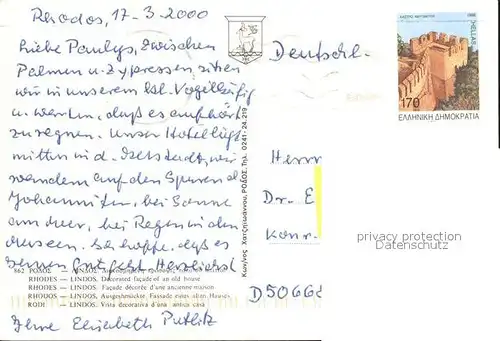 Rhodos, 17-3-2000
Liebe Paulys, zwischen
Palmen u. Zypressen sitzen
wir in unserem kl. Vogelkäfig
u. warten, daß es aufhört
zu regnen. Unser Hotel liegt
mitten in d. Altstadt, wir
wandern auf den Spuren d.
Johanniter, bei Sonne
am Meer, bei Regen in den
Museen. Ich hoffe, daß es
Ihnen gut geht. Herzlichst
862 ΡΟΔΟΣ — ΛΙΝΔΟΣ.
RHODES — LINDOS. Decorated façade of an old house
RHODES — LINDOS. Façade décorée d'une ancienne maison
RHODOS — LINDOS. Ausgeschmückte Fassade eines alten Hauses
RODI — LINDOS. Vista decorativa d'una antica casa
Ihre Elisabeth Putlitz
Κων/νος Χατζηιωάννου, ΡΟΔΟΣ, Τηλ. 0241-24.219
Deutschl.
HELLAS
170
ΕΛΛΗΝΙΚΗ ΔΗΜΟΚΡΑΤΙΑ
Herrn
Dr. E
Konr.
D50668
privacy protection
Datenschutz